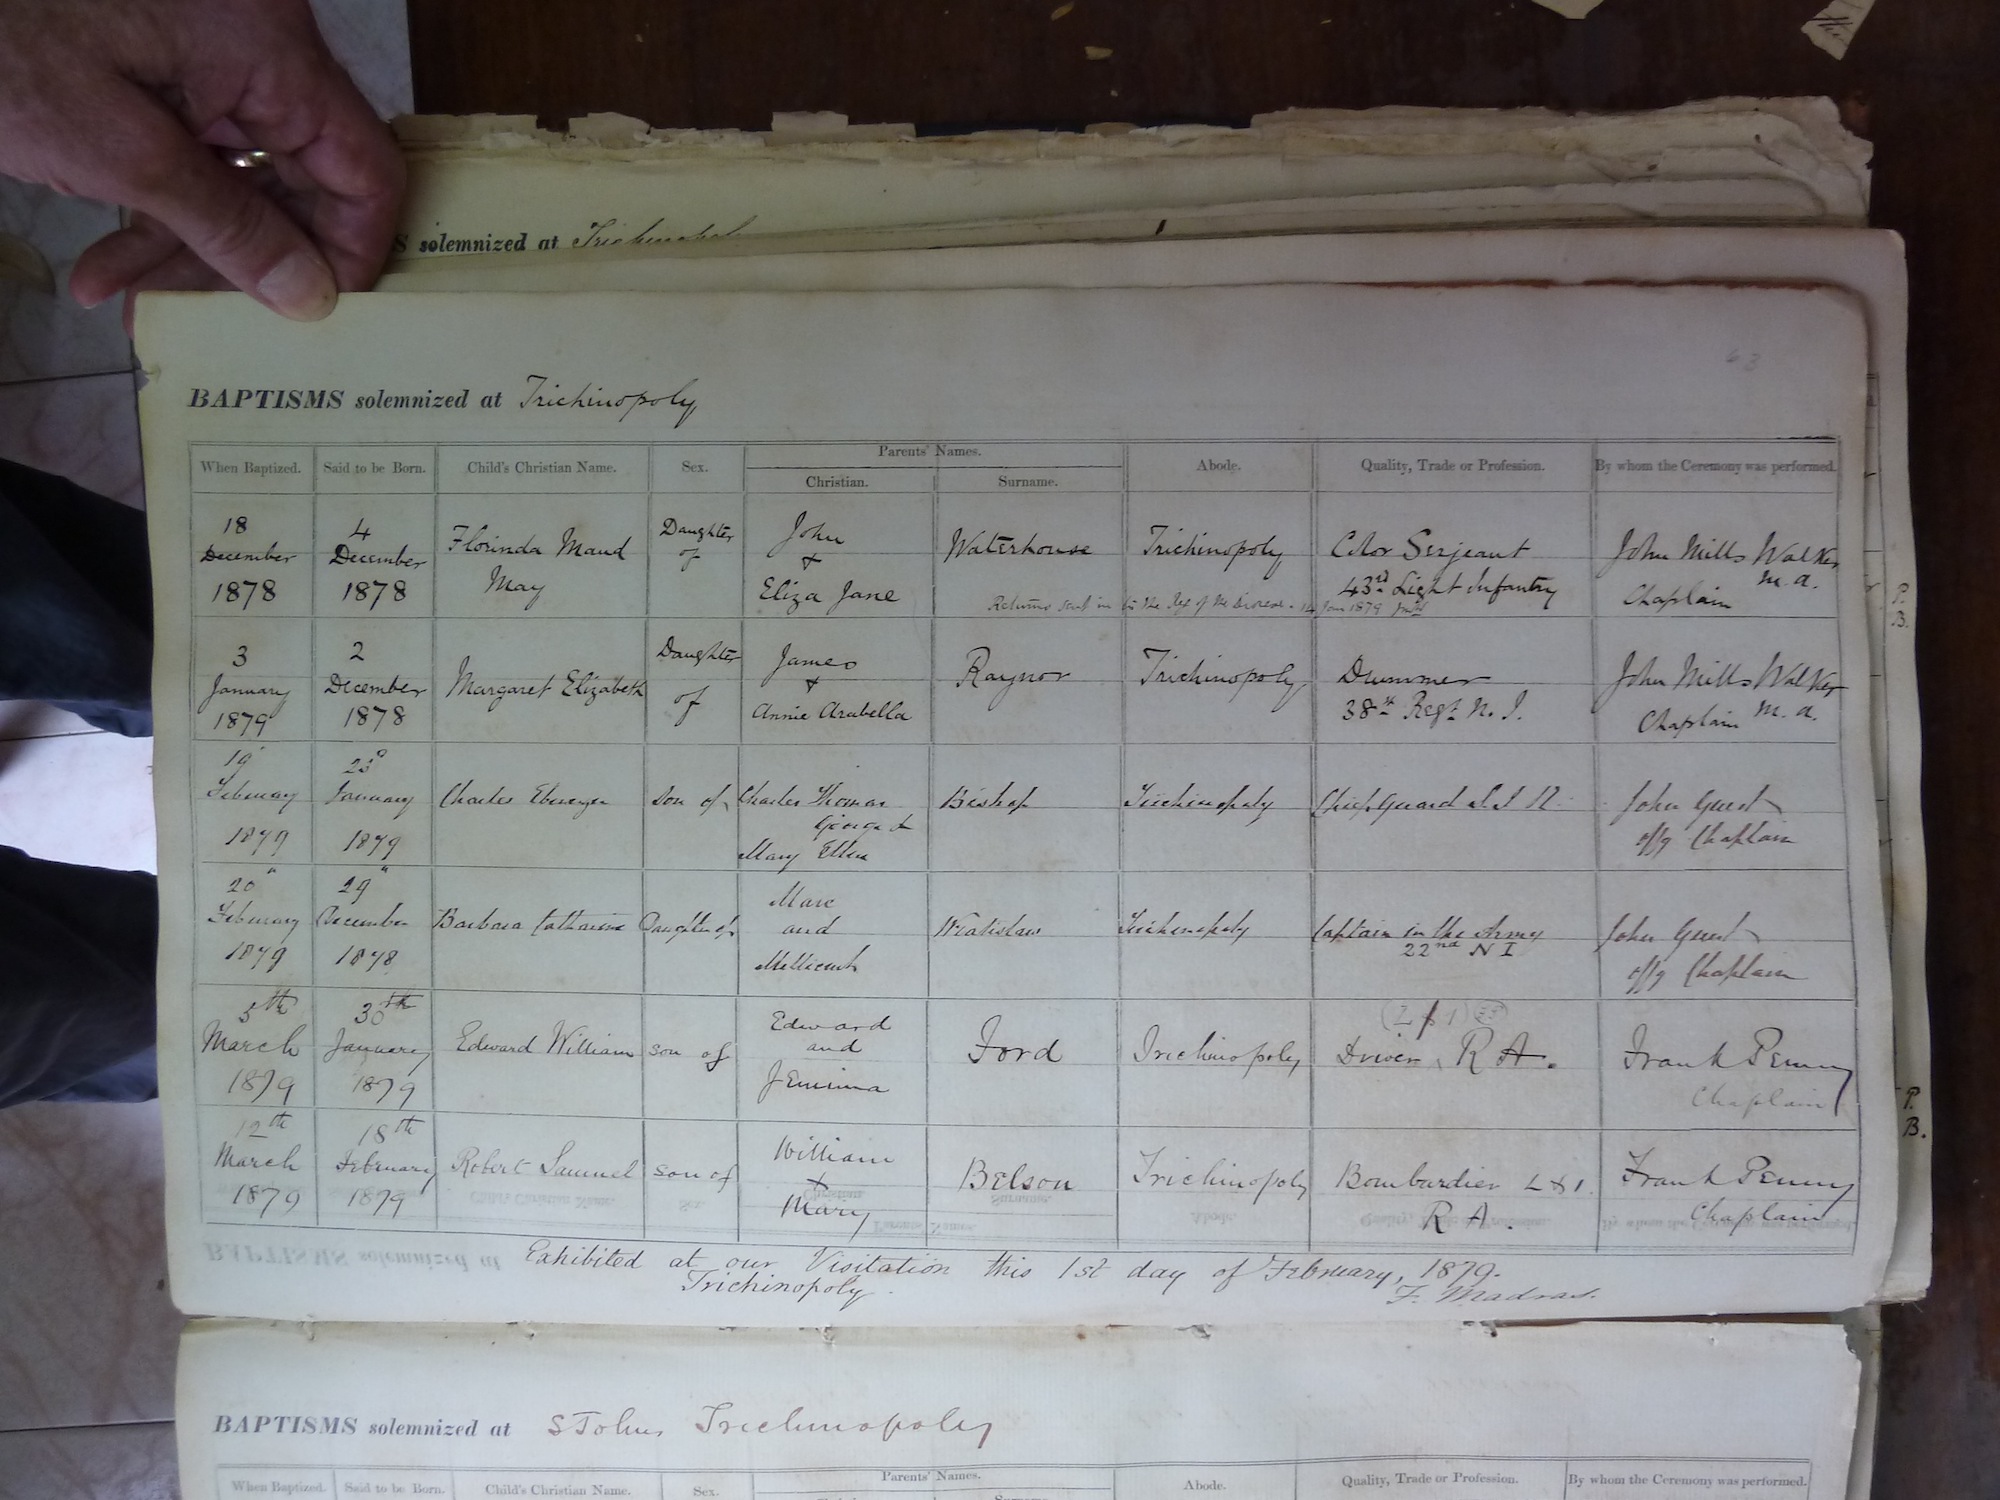 S solemnized at Trichinopol
43
BAPTISMS solemnized at Trichinopoly
Parents' Names.
When Baptized. Said to be Born. Child's Christian Name. Sex. Christian. Surname. Abode. Quality, Trade or Profession. By whom the Ceremony was performed.
18 December 1878 4 December 1878 Florinda Maud May Daughter of John + Eliza Jane Waterhouse Trichinopoly Color Serjeant 43rd Light Infantry John Mills Walker M.A. Chaplain
Returns sent in to the Reg of the Diocese. 14 Jan 1879 JMW
3 January 1879 2 December 1878 Margaret Elizabeth Daughter of James + Annie Arabella Raynor Trichinopoly Drummer 38th Regt N. I. John Mills Walker Chaplain M.A.
19 February 1879 23 January 1879 Charles Ebenezer Son of Charles Thomas George & Mary Ellen Bishop Trichinopoly Chief Guard S. I. R. John Guest offg Chaplain
20 February 1879 29 December 1878 Barbara Catharine Daughter of Marc and Millicent Wratislaw Trichinopoly Captain in the Army 22nd N I John Guest offg Chaplain
5th March 1879 30th January 1879 Edward William son of Edward and Jemima Ford Trichinopoly Driver R A. Frank Penny Chaplain
12th March 1879 18th February 1879 Robert Samuel son of William + Mary Belson Trichinopoly Bombardier L & 1. R A. Frank Penny Chaplain
Exhibited at our Visitation this 1st day of February, 1879.
Trichinopoly. F. Madras.
P.
B.
P.
B.
BAPTISMS solemnized at S Johns Trichinopoly
Parents' Names.
When Baptized. Said to be Born. Child's Christian Name. Sex. Abode. Quality, Trade or Profession. By whom the Ceremony was performed.